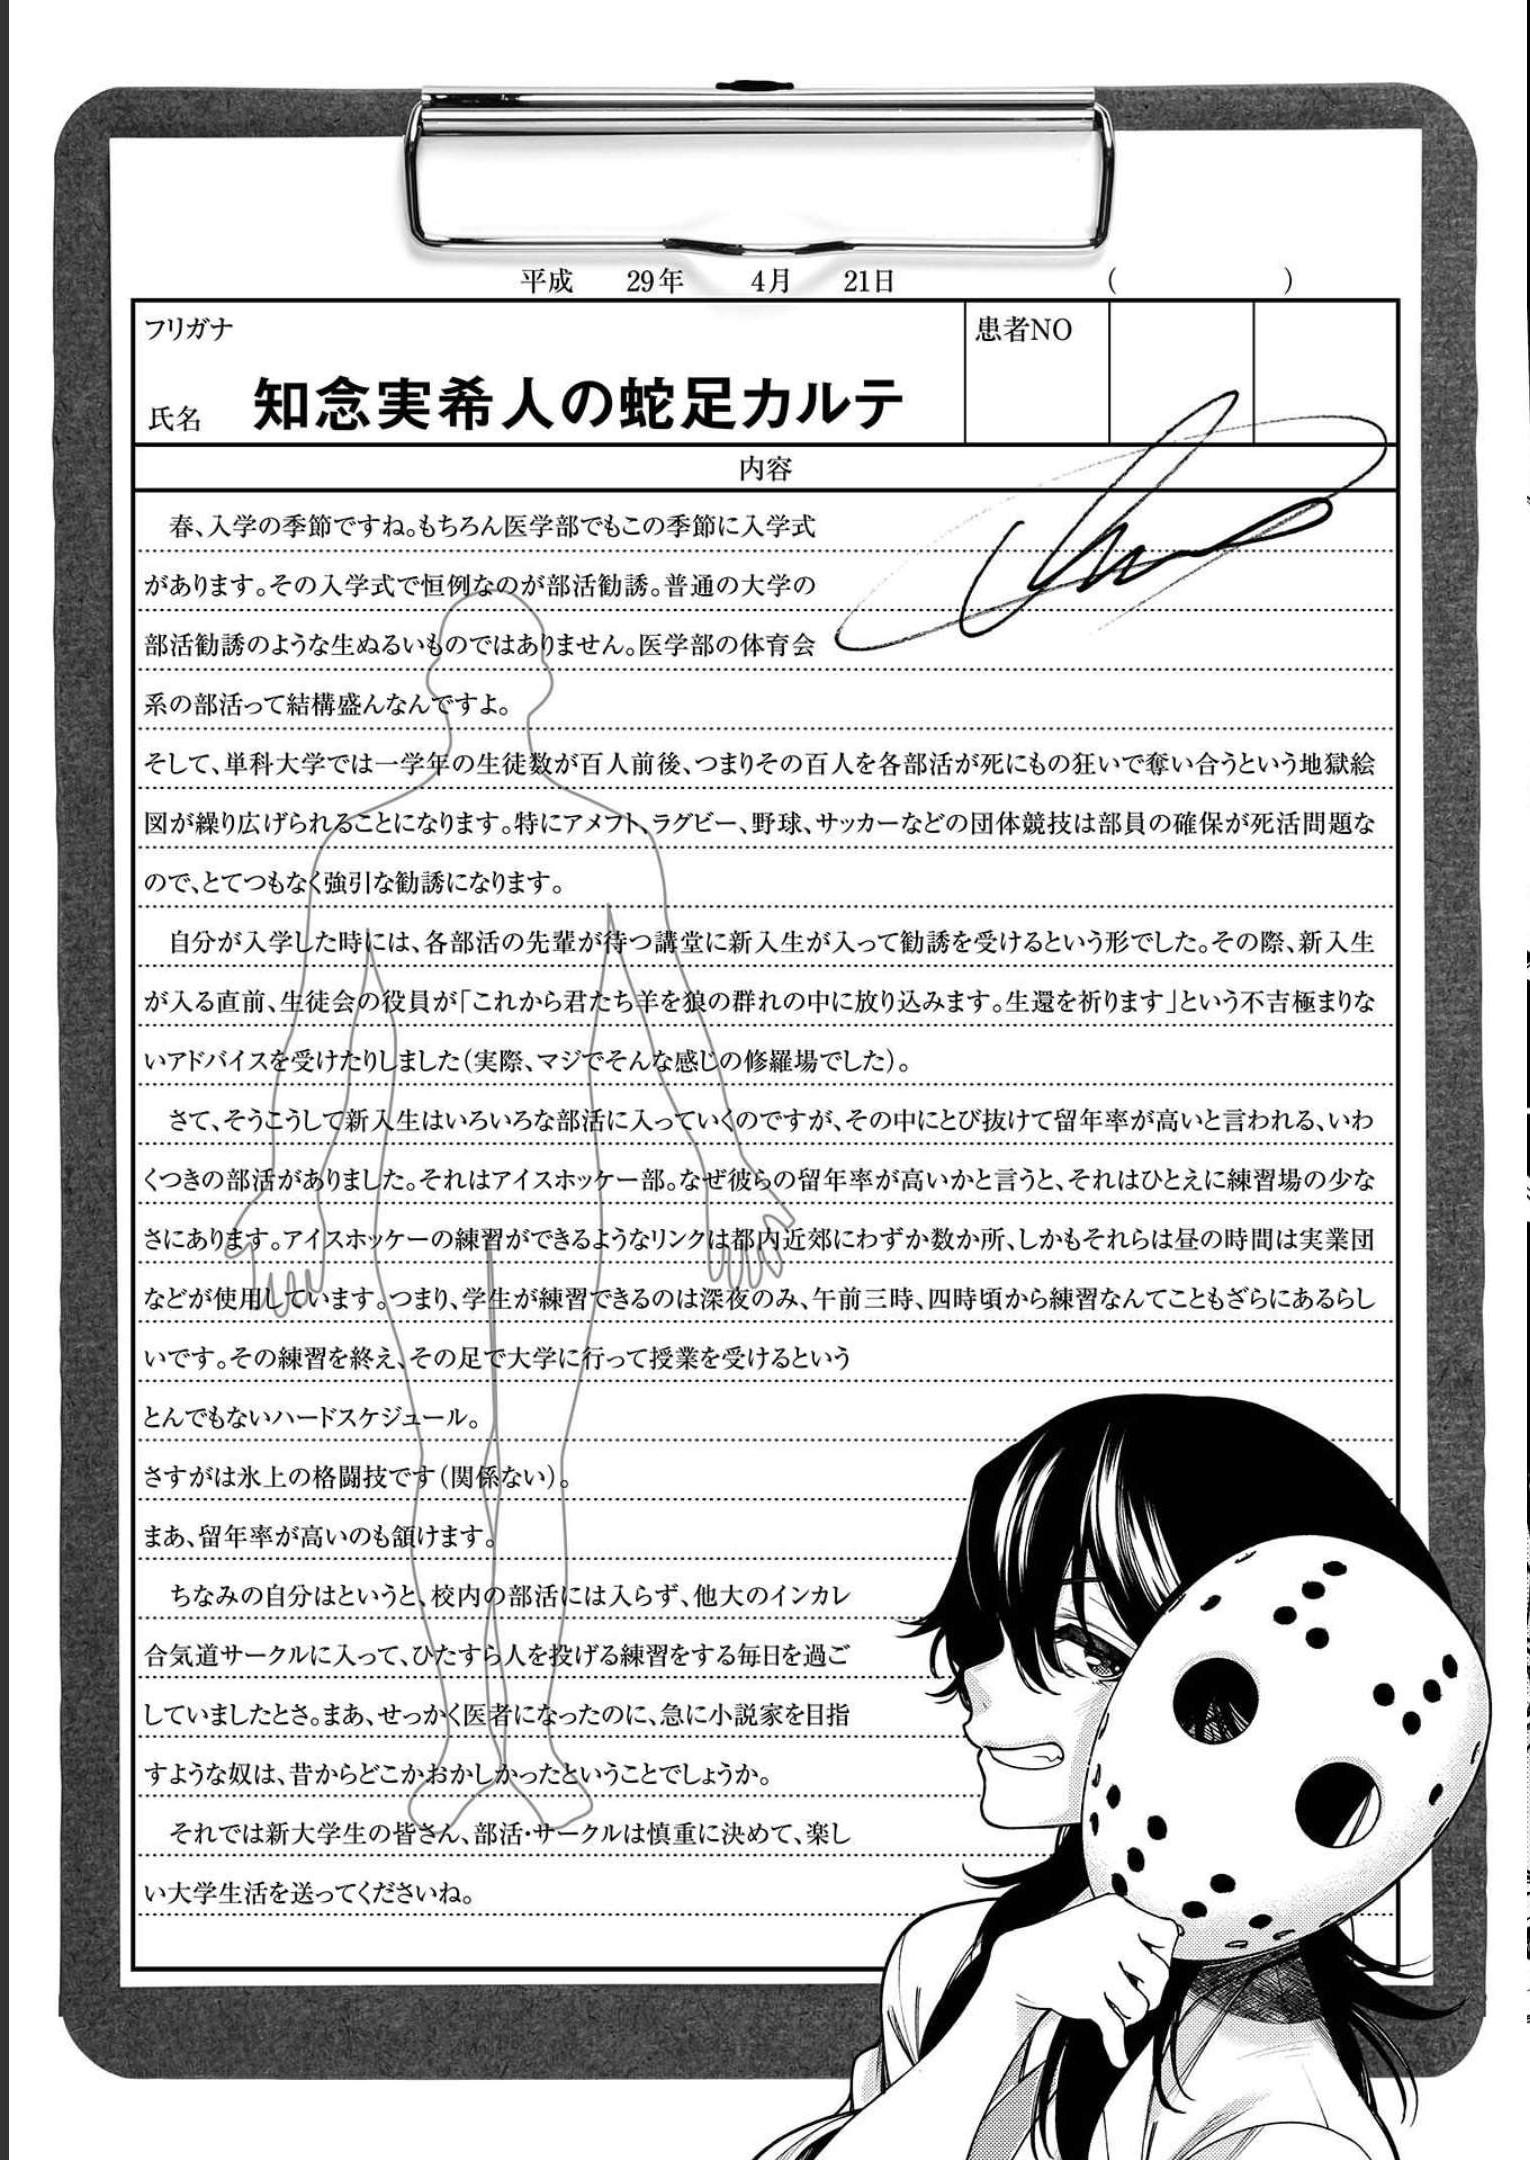 平成 29年 4月 21日 ( )
フリガナ
患者NO
氏名 知念実希人の蛇足カルテ
内容
春、入学の季節ですね。もちろん医学部でもこの季節に入学式
があります。その入学式で恒例なのが部活勧誘。普通の大学の
部活勧誘のような生ぬるいものではありません。医学部の体育会
系の部活って結構盛んなんですよ。
そして、単科大学では一学年の生徒数が百人前後、つまりその百人を各部活が死にもの狂いで奪い合うという地獄絵
図が繰り広げられることになります。特にアメフト、ラグビー、野球、サッカーなどの団体競技は部員の確保が死活問題な
ので、とてつもなく強引な勧誘になります。
自分が入学した時には、各部活の先輩が待つ講堂に新入生が入って勧誘を受けるという形でした。その際、新入生
が入る直前、生徒会の役員が「これから君たち羊を狼の群れの中に放り込みます。生還を祈ります」という不吉極まりな
いアドバイスを受けたりしました(実際、マジでそんな感じの修羅場でした)。
さて、そうこうして新入生はいろいろな部活に入っていくのですが、その中にとび抜けて留年率が高いと言われる、いわ
くつきの部活がありました。それはアイスホッケー部。なぜ彼らの留年率が高いかと言うと、それはひとえに練習場の少な
さにあります。アイスホッケーの練習ができるようなリンクは都内近郊にわずか数か所、しかもそれらは昼の時間は実業団
などが使用しています。つまり、学生が練習できるのは深夜のみ、午前三時、四時頃から練習なんてこともざらにあるらし
いです。その練習を終え、その足で大学に行って授業を受けるという
とんでもないハードスケジュール。
さすがは氷上の格闘技です(関係ない)。
まあ、留年率が高いのも頷けます。
ちなみの自分はというと、校内の部活には入らず、他大のインカレ
合気道サークルに入って、ひたすら人を投げる練習をする毎日を過ご
していましたとさ。まあ、せっかく医者になったのに、急に小説家を目指
すような奴は、昔からどこかおかしかったということでしょうか。
それでは新大学生の皆さん、部活・サークルは慎重に決めて、楽し
い大学生活を送ってくださいね。